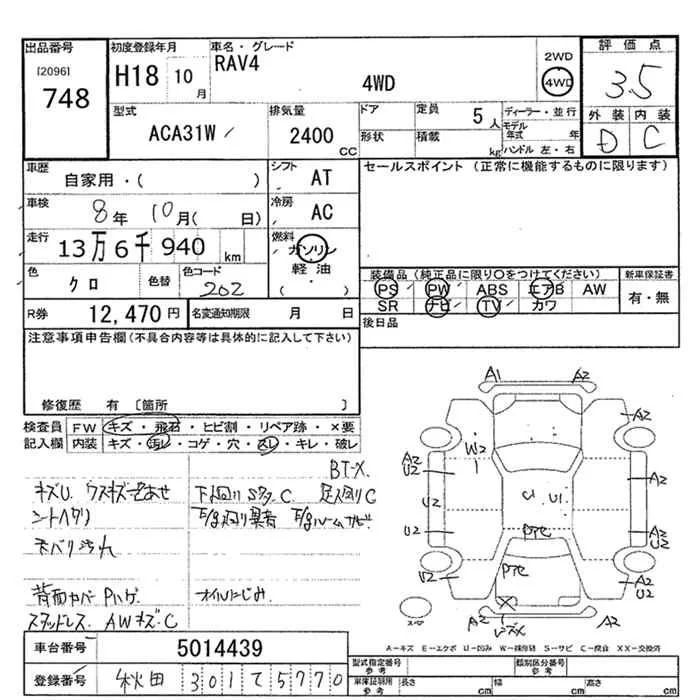 出品番号 初度登録年月 車名・グレード 2WD 評価点
[2096] H18 10月 RAV4 4WD 4WD 3.5
748 外装 内装
型式 排気量 ドア 定員 5人 ディーラー・並行 D C
ACA31W 2400cc 形状 積載 kg モデル年式 年
ハンドル 左・右
車歴 シフト セールスポイント (正常に機能するものに限ります)
自家用・( ) AT
車検 冷房
8年 10月( 日) AC
走行 燃料
13万6千940km ガソリン
軽油
色 色替 色コード ・
クロ 202 ( )
装備品(純正品に限り○をつけてください) 新車保証書
PS PW ABS エアB AW 有・無
SR ナビ TV カワ
R券 12,470円 名変通知期限 月 日
後日品
注意事項申告欄(不具合内容等は具体的に記入して下さい)
修復歴 有 〔箇所 〕
検査員 FW キズ・飛石・ヒビ割・リペア跡・×要
記入欄 内装 キズ・汚レ・コゲ・穴・スレ・キレ・破レ
BT-X.
キズU. ウスキズ
下回りSタ.C. 足廻りC
オイルにじみ
背面カバー Pハゲ
スタッドレス. AWキズ.C
A1 A2
A2
W2
A2
U2 A2
U2 U U1
U2 A2
U2
PTC
U2 PTC A2
U2
A2 A2
A-キズ E-エクボ U-凹み W-補修跡 S-サビ C-腐食 XX-交換済
車台番号 5014439
登録番号 秋田 301 て 5770
型式指定番号 参考 類別区分番号 参考
車庫証明用 参考 長さ cm 幅 cm 高さ cm